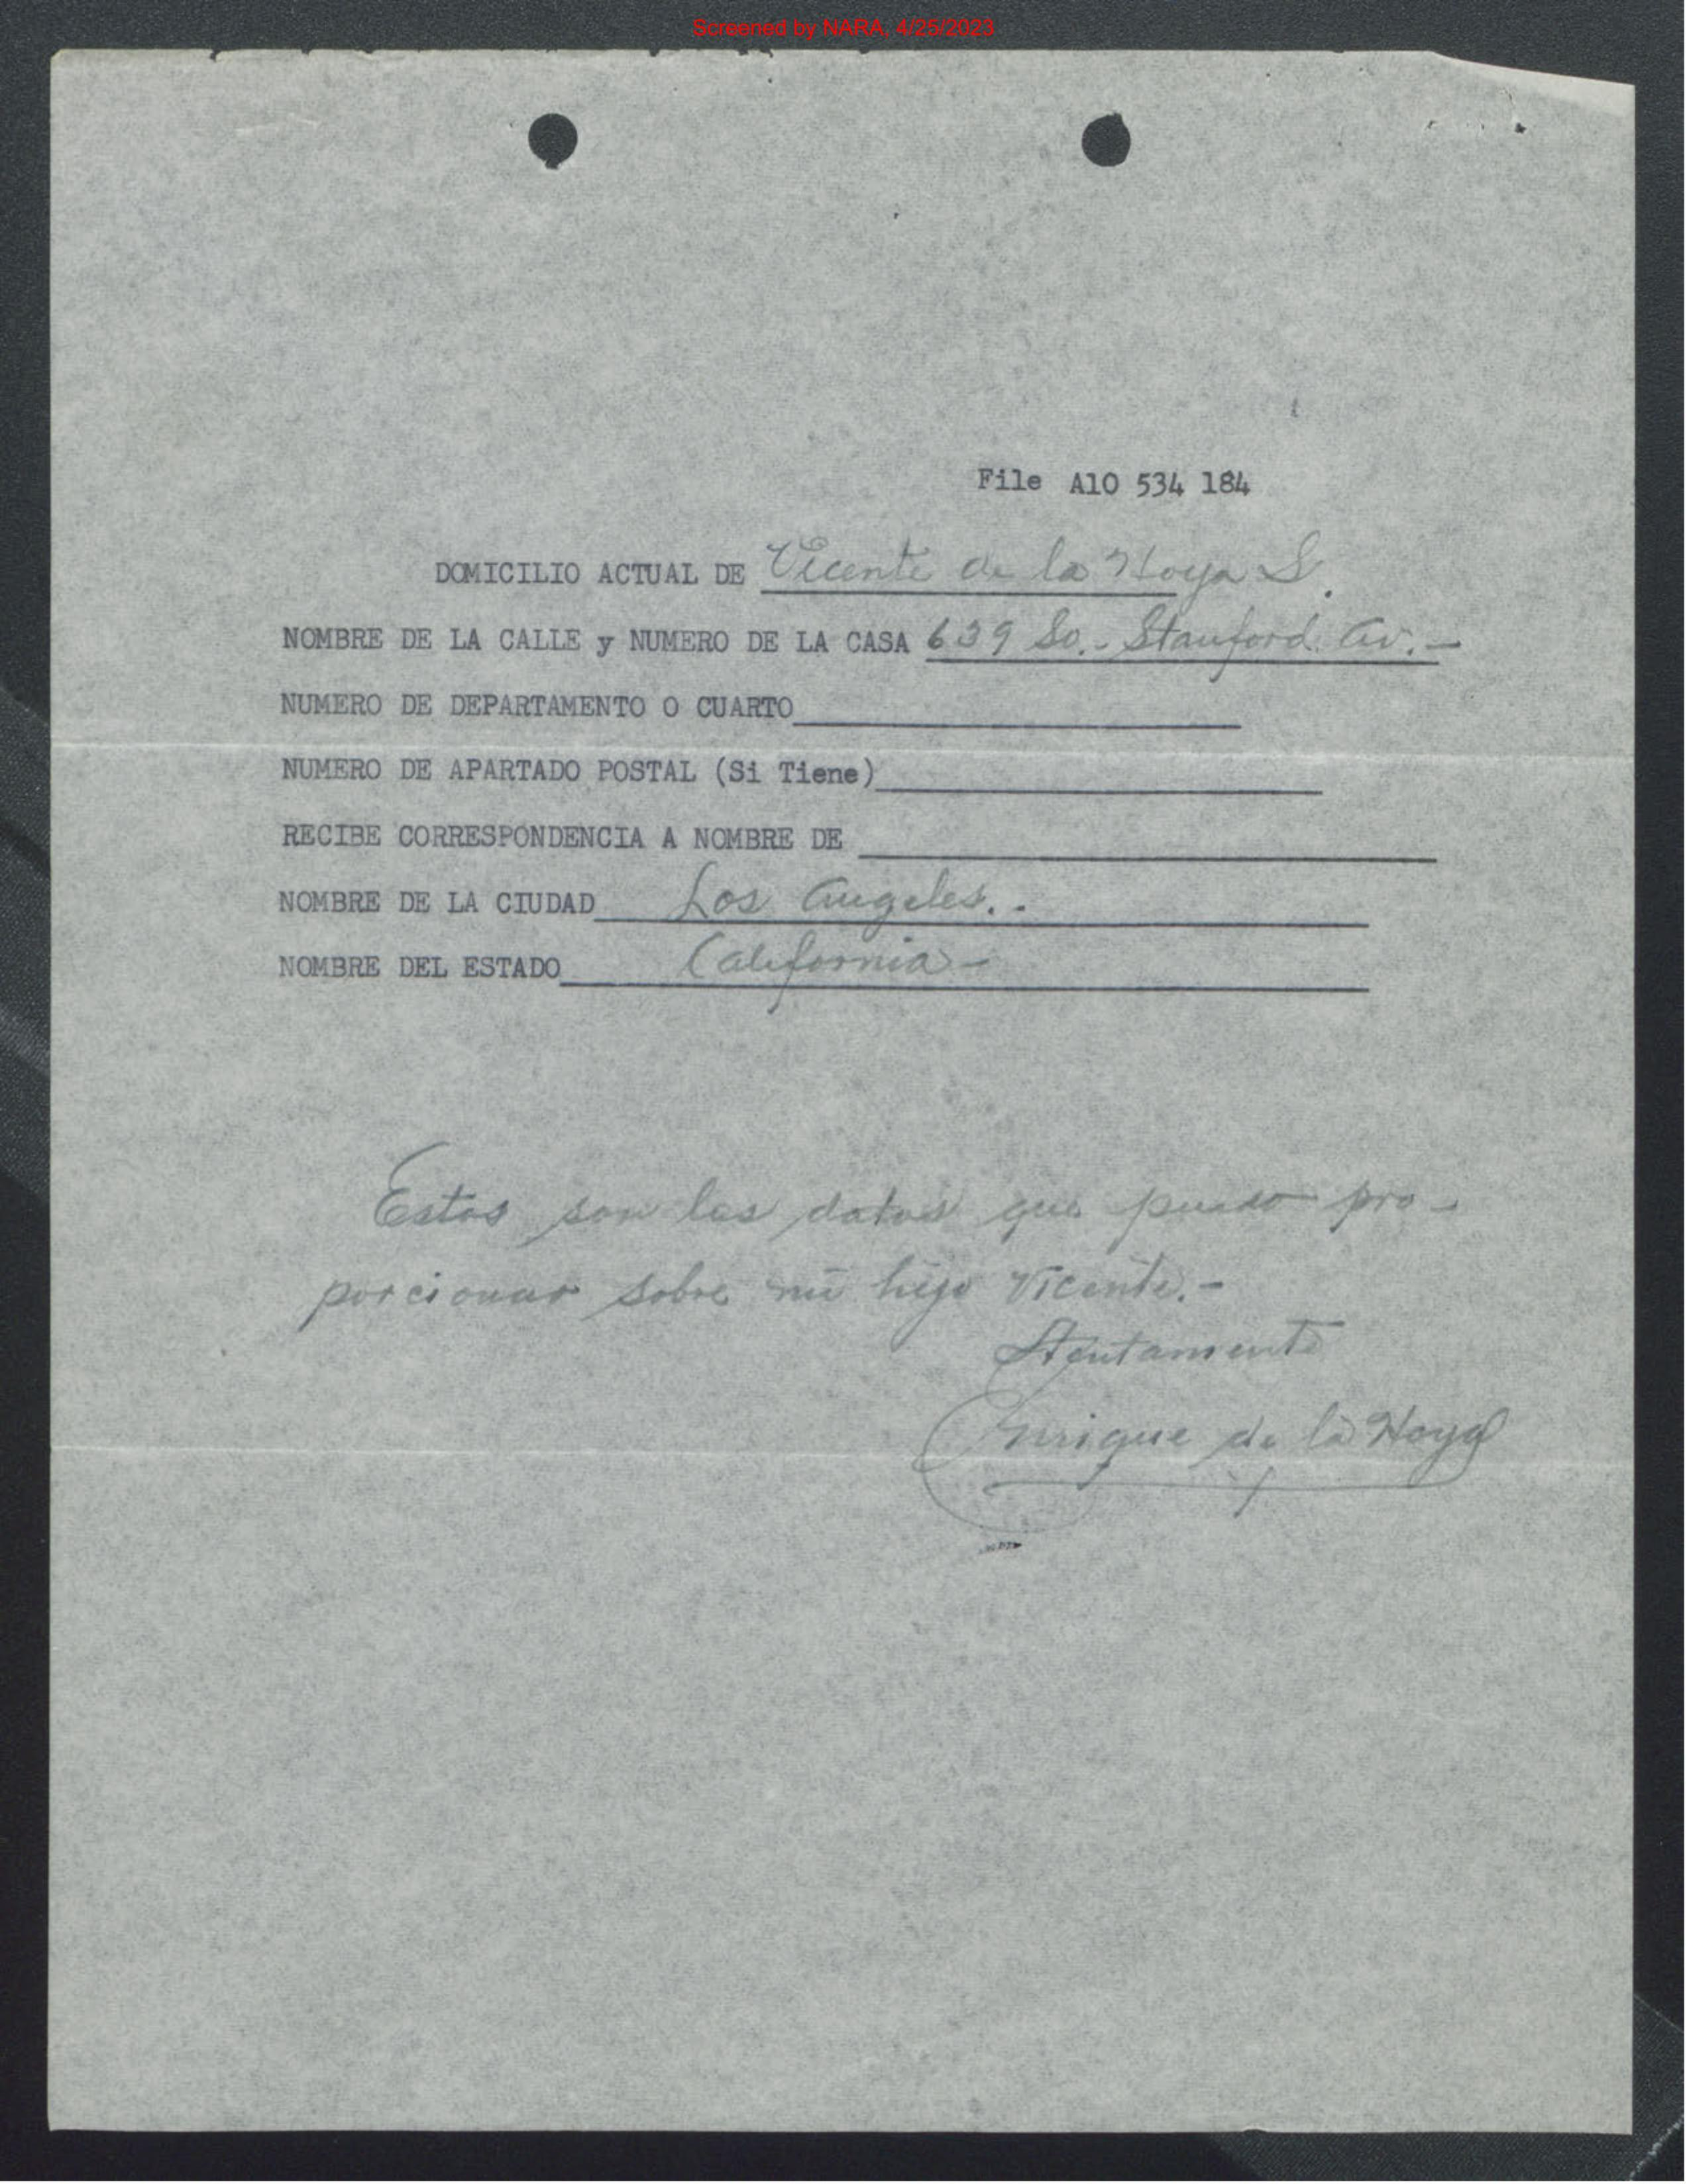 Screened by NARA, 4/25/2023
File A10 534 184
DOMICILIO ACTUAL DE Vicente de la Hoya S.
NOMBRE DE LA CALLE y NUMERO DE LA CASA 639 So.- Stanford Av.-
NUMERO DE DEPARTAMENTO O CUARTO
NUMERO DE APARTADO POSTAL (Si Tiene)
RECIBE CORRESPONDENCIA A NOMBRE DE
NOMBRE DE LA CIUDAD Los Angeles.-
NOMBRE DEL ESTADO California-
Estos son los datos que puedo pro-
porcionar sobre mi hijo Vicente.-
Atentamente
Enrique de la Hoya